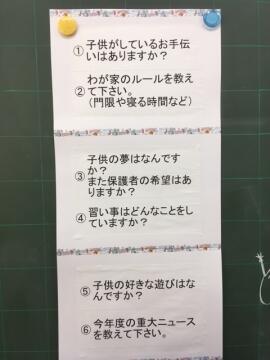 ① 子供がしているお手伝
いはありますか？
② わが家のルールを教え
て下さい。
（門限や寝る時間など）
③ 子供の夢はなんです
か？
また保護者の希望はあ
りますか？
④ 習い事はどんなことをし
ていますか？
⑤ 子供の好きな遊びはな
んですか？
⑥ 今年度の重大ニュース
を教えて下さい。